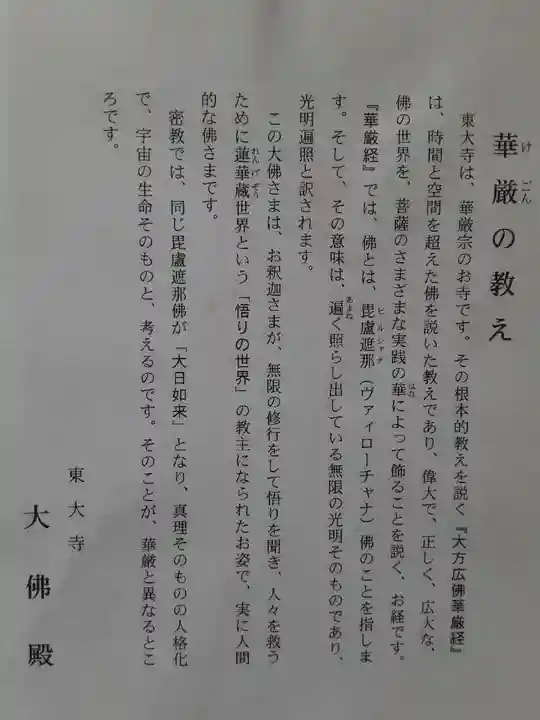 華厳の教え
東大寺は、華厳宗のお寺です。その根本的教えを説く『大方広佛華厳経』
は、時間と空間を超えた佛を説いた教えであり、偉大で、正しく、広大な、
佛の世界を、菩薩のさまざまな実践の華によって飾ることを説く、お経です。
『華厳経』では、佛とは、毘盧遮那（ヴァイローチャナ）佛のことを指しま
す。そして、その意味は、遍く照らし出している無限の光明そのものであり、
光明遍照と訳されます。
この大佛さまは、お釈迦さまが、無限の修行をして悟りを聞き、人々を救う
ために蓮華蔵世界という「悟りの世界」の教主になられたお姿で、実に人間
的な佛さまです。
密教では、同じ毘盧遮那佛が「大日如来」となり、真理そのものの人格化
で、宇宙の生命そのものと、考えるのです。そのことが、華厳と異なるとこ
ろです。
東大寺
大佛殿